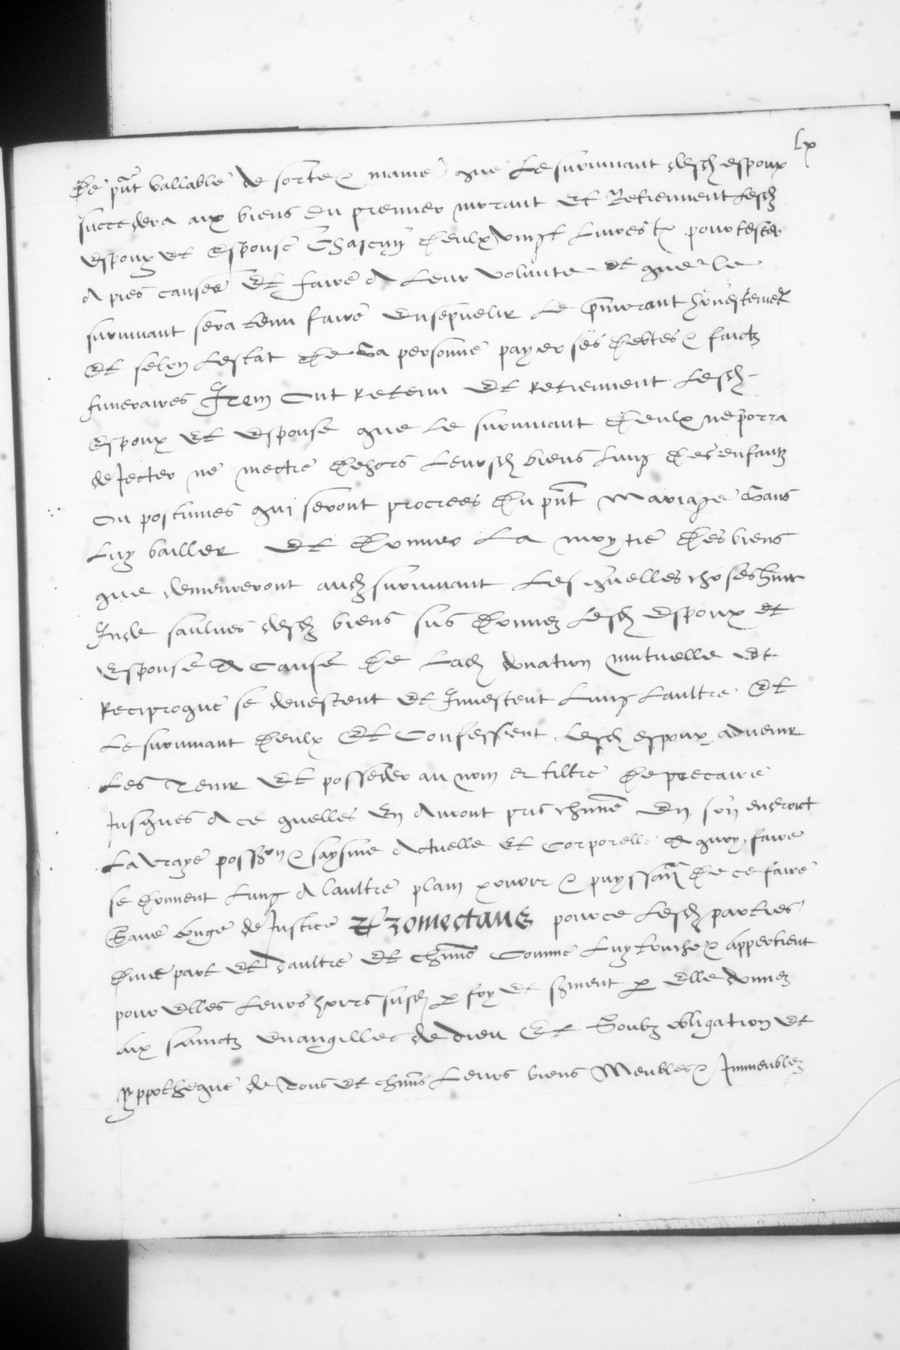 Lx
De pnt vallable de sorte & manie que Le survivant desd espoux
succedera aix biens du premier morant Et Retiennent Lesd
espoux et espouse Chascun d'eulx vingt Livres tz pour tester
A pies causes Et faire A Leur volunte et que le
survivant sera tenu faire ensepvelir Le pmorant honestemet
Et selon Lestat de Sa personne payer ses debtes & faictz
funeraires Item Ont Retenu Et Retiennent Lesd
espoux Et espouse que Le survivant d'eulx ne porra
dejecter ne mectre dehors Leursd biens Lung des enfantz
Ou postumes qui seront procrees du pnt Mariage Sans
Luy bailler Et donner La moytie des biens
que demeureront aud survivant Lesquelles choses
saulves desd biens sus donnez Lesd Espoux et
Espouse A Cause de Lad donation mutuelle et
Reciproque se devestent et Investent Lung Laultre Et
Le survivant d'eulx Et Confessent Lesd espoux advenir
Les Tenir Et posseder au nom et tiltre de precaire
Jusques A ce quelles En Auront pris chune En son endroict
La vraye possøn & saysine Actuelle Et Corporelle A quoy faire
se donnent Lung A laultre plain povoir & puyssan de ce faire
Sans Conge de Justice Et Promectans pource Lesd parties
dune part Et daultre Et chuns Comme Luy touche & appertient
pour elles Leurs hoirs susd p foy et sment p Elle donnez
aix sainctz evangilles de dieu Et Soubz obligation Et
Yppotheque de Tous Et chuns Leurs biens Meubles & Immeubles